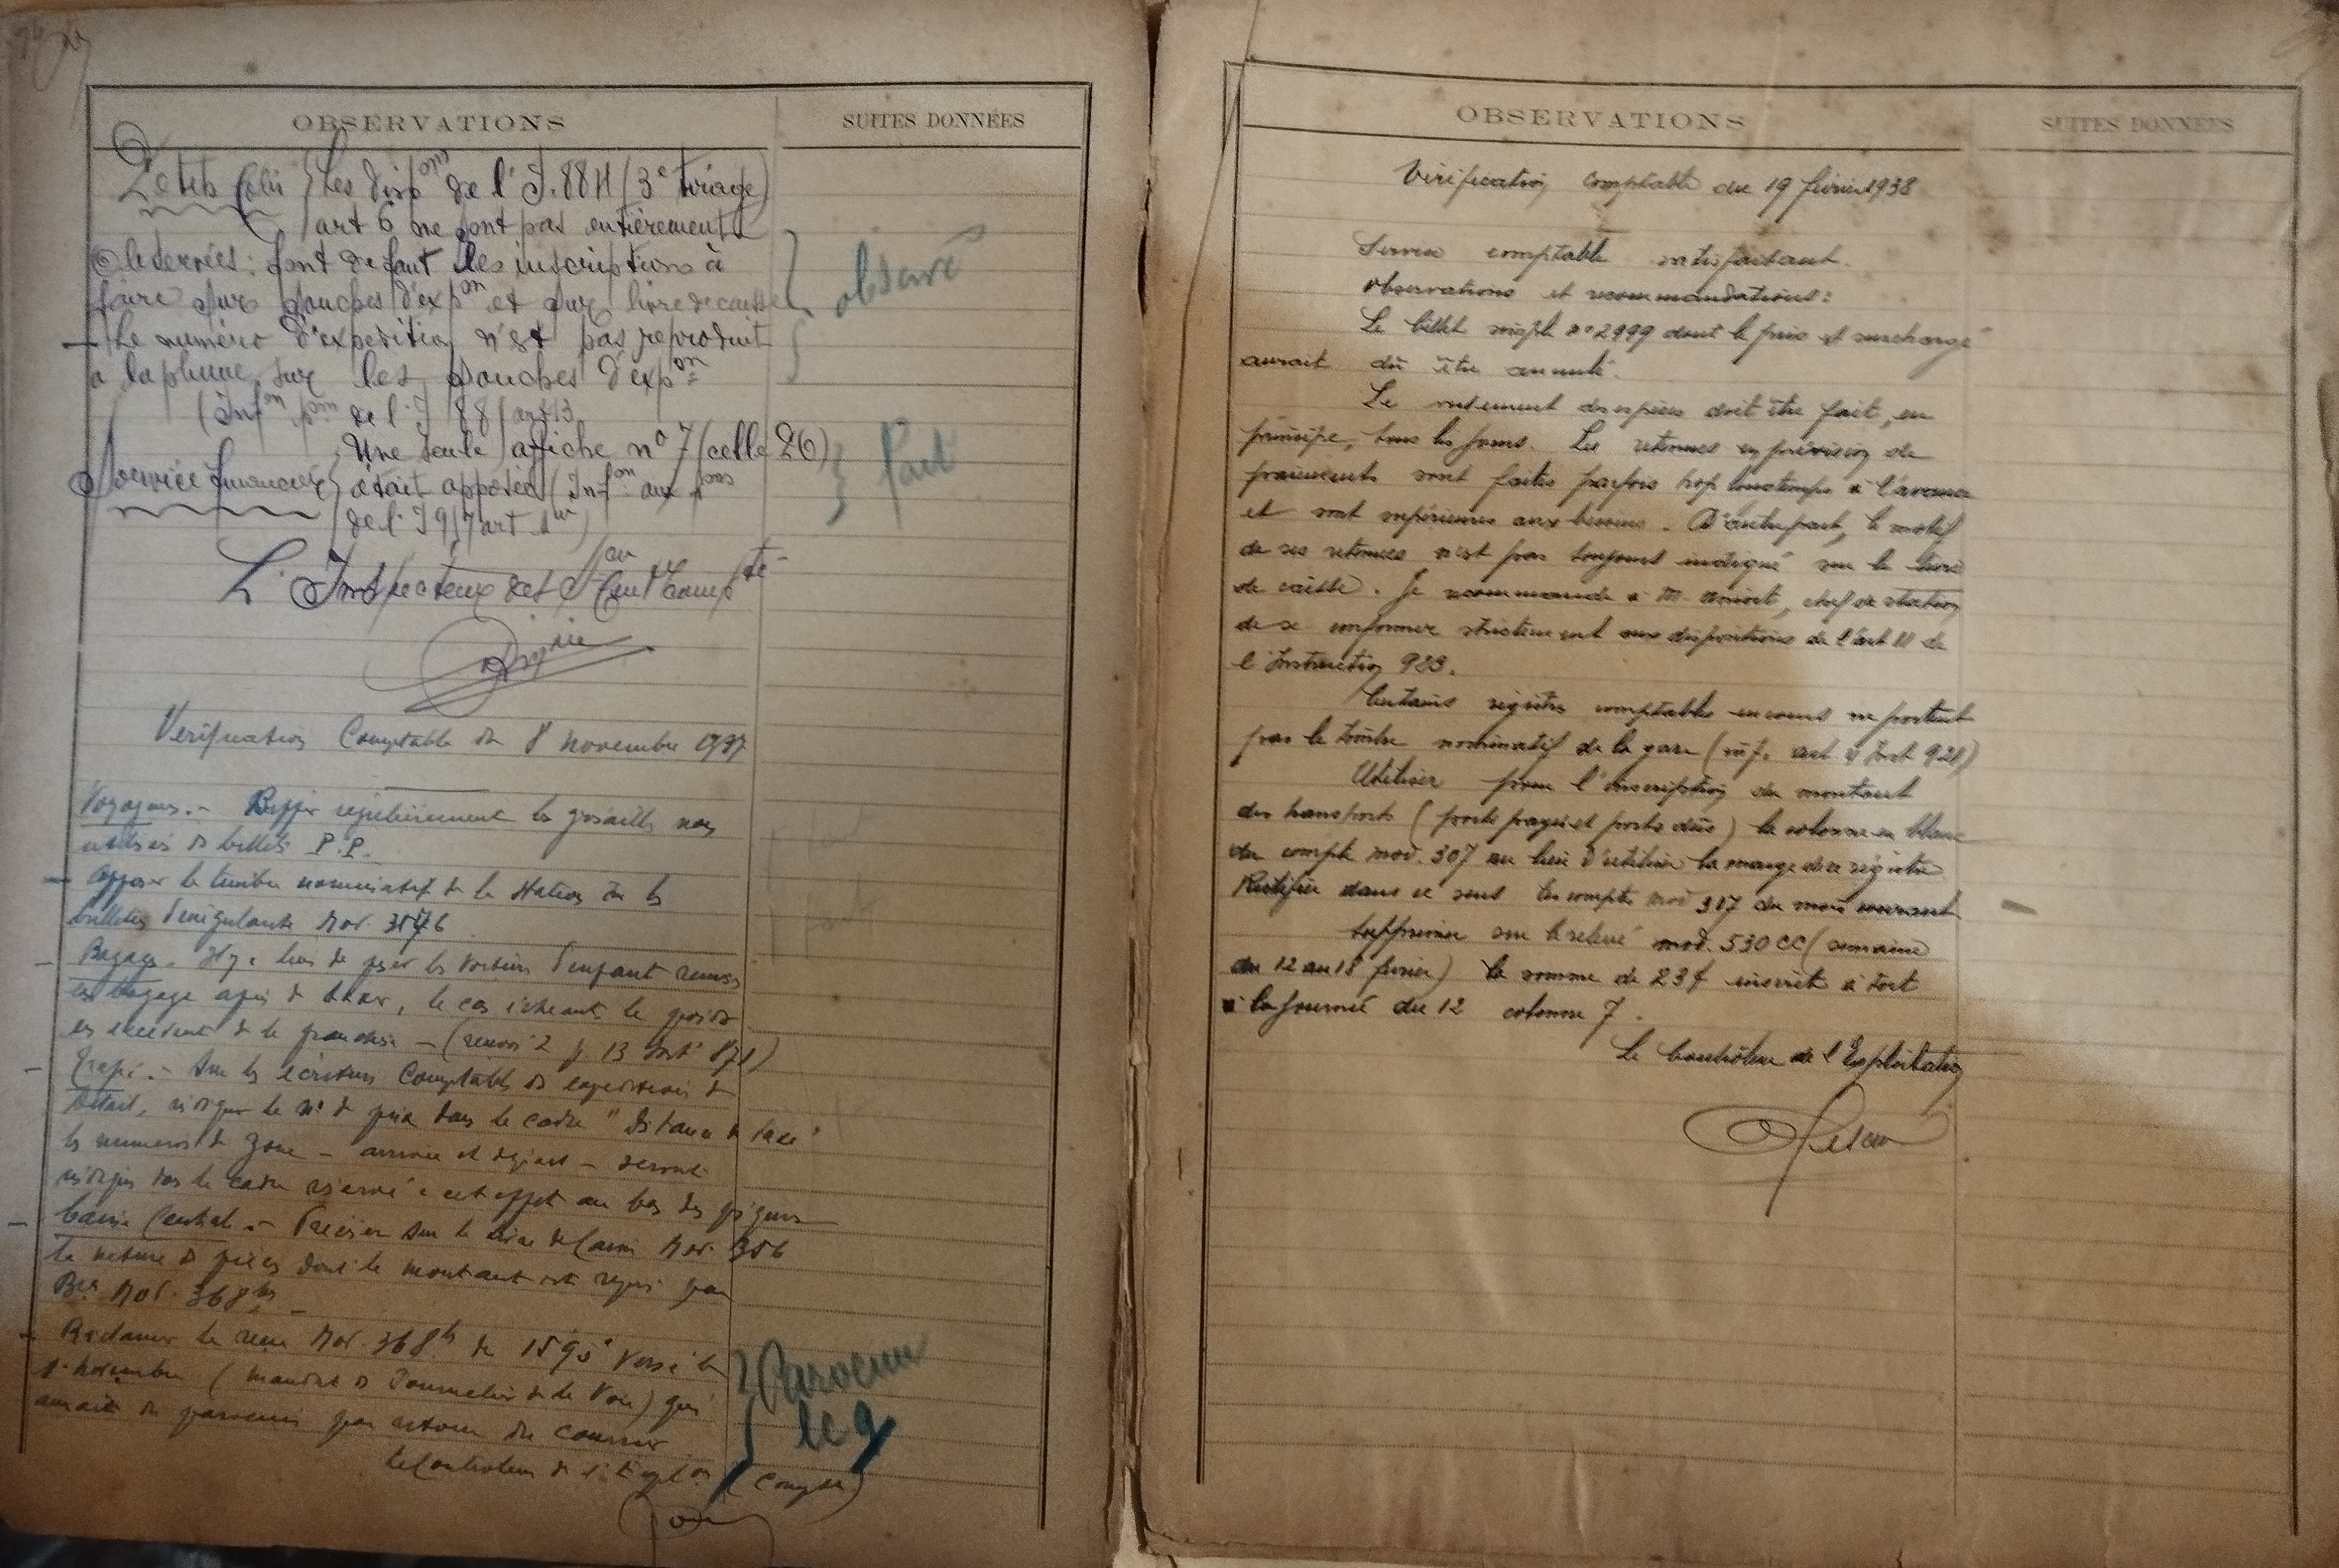 OBSERVATIONS
SUITES DONNÉES
Petits Colis { Les disp.ons de l'I. 88 H (3e tirage)
art 6 ne sont pas entièrement
observées : font défaut les inscriptions à
faire sur souches d'exp.on et sur livre de caisse
observé
— Le numéro d'expédition n'est pas reproduit
à la plume sur les souches d'exp.on
de l'I 88 art 13
Une seule affiche n° 7 (celle 26)
Service financier { était apposée (Inf.on aux p.ons
de l'I 917 art 1er)
fait
L'Inspecteur des
Vérification Comptable du 8 novembre 1937
Voyageurs. — Biffer régulièrement les
utilisés de billets P.P.
— Apposer le timbre nominatif de la station sur les
billets Mod.
— Bagages. Il y a lieu de peser les voitures d'enfant remises
en bagage afin de taxer, le cas échéant le poids
en excédent de la franchise — (renvoi 2 p. 13 Inst. 871)
— Sur les écritures comptables des expéditions de
détail, le n° de prix dans le cadre "Distance de taxe"
les numéros de zone — arrivée et départ — seront
dans le cadre réservé à cet effet au bas des
— Caisse Centrale. — Préciser sur le livre de Caisse Mod. 356
la nature de pièces dont le montant est repris par
Brs Mod. 368 bis —
— Réclamer le reçu Mod. 368 bis de versé le
novembre (mandat de Journalier de la Voie) qui
aurait dû parvenir par retour du courrier
Parvenu
le 9
Le Contrôleur de l'Expl.on (Compté)
OBSERVATIONS
SUITES DONNÉES
Vérification comptable du 19 février 1938
Service comptable satisfaisant.
Observations et recommandations :
Le billet simple n° 2999 dont le prix est surchargé
aurait dû être annulé.
Le versement des espèces doit être fait, en
principe, tous les jours. Les retenues en prévision de
paiements sont faites parfois trop longtemps à l'avance
et sont supérieures aux besoins. D'autre part, le motif
de ces retenues n'est pas toujours indiqué sur le livre
de caisse. Je recommande à M. chef de station,
de se conformer strictement aux dispositions de l'art 11 de
l'Instruction 923.
Certains registres comptables en cours ne portent
pas le timbre nominatif de la gare (inf. art. 4 Inst 921)
Utiliser pour l'inscription du montant
des transports (ports payés et ports dûs) la colonne en blanc
du compte mod. 307 au lieu d'utiliser la marge de ce registre
Rectifier dans ce sens les comptes mod 307 du mois courant
Supprimer sur le relevé mod. 530 CC (semaine
du 12 au 18 février) la somme de 23f inscrite à tort
à la journée du 12 colonne 7.
Le Contrôleur de l'Exploitation